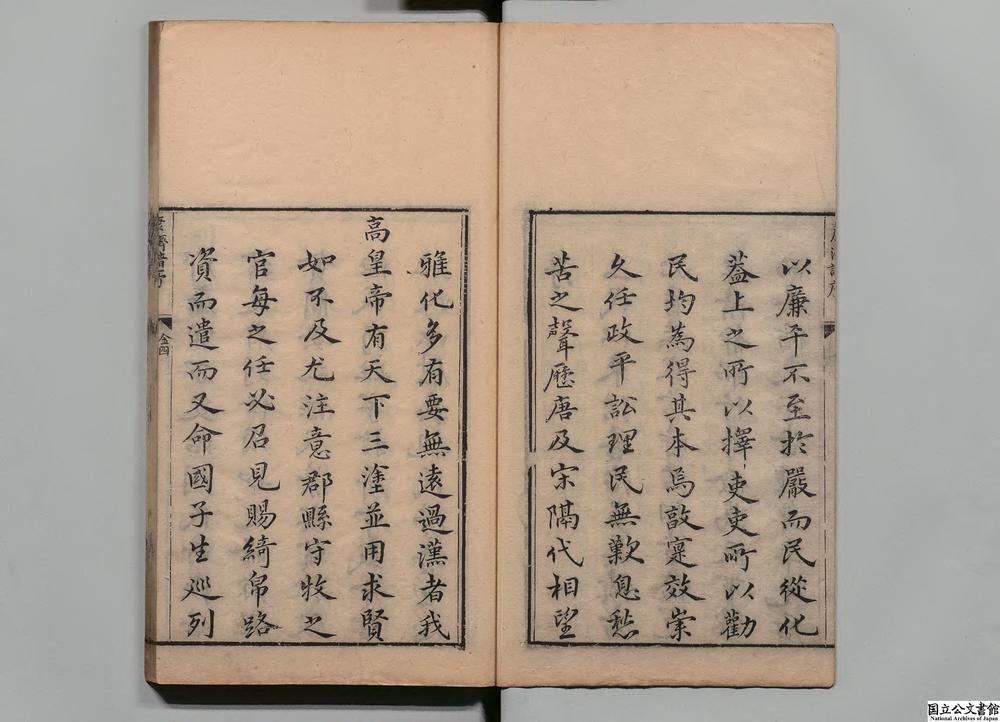 以廉平不至於嚴而民從化
葢上之所以擇吏吏所以勸
民均為得其本焉故寔效崇
久任政平訟理民無歎息愁
苦之聲歷唐及宋隔代相望
雅化多有要無遠過漢者我
高皇帝有天下三塗並用求賢
如不及尤注意郡縣守牧之
官每之任必召見賜綺帛路
資而遣而又命國子生巡列
金四
国立公文書館
National Archives of Japan